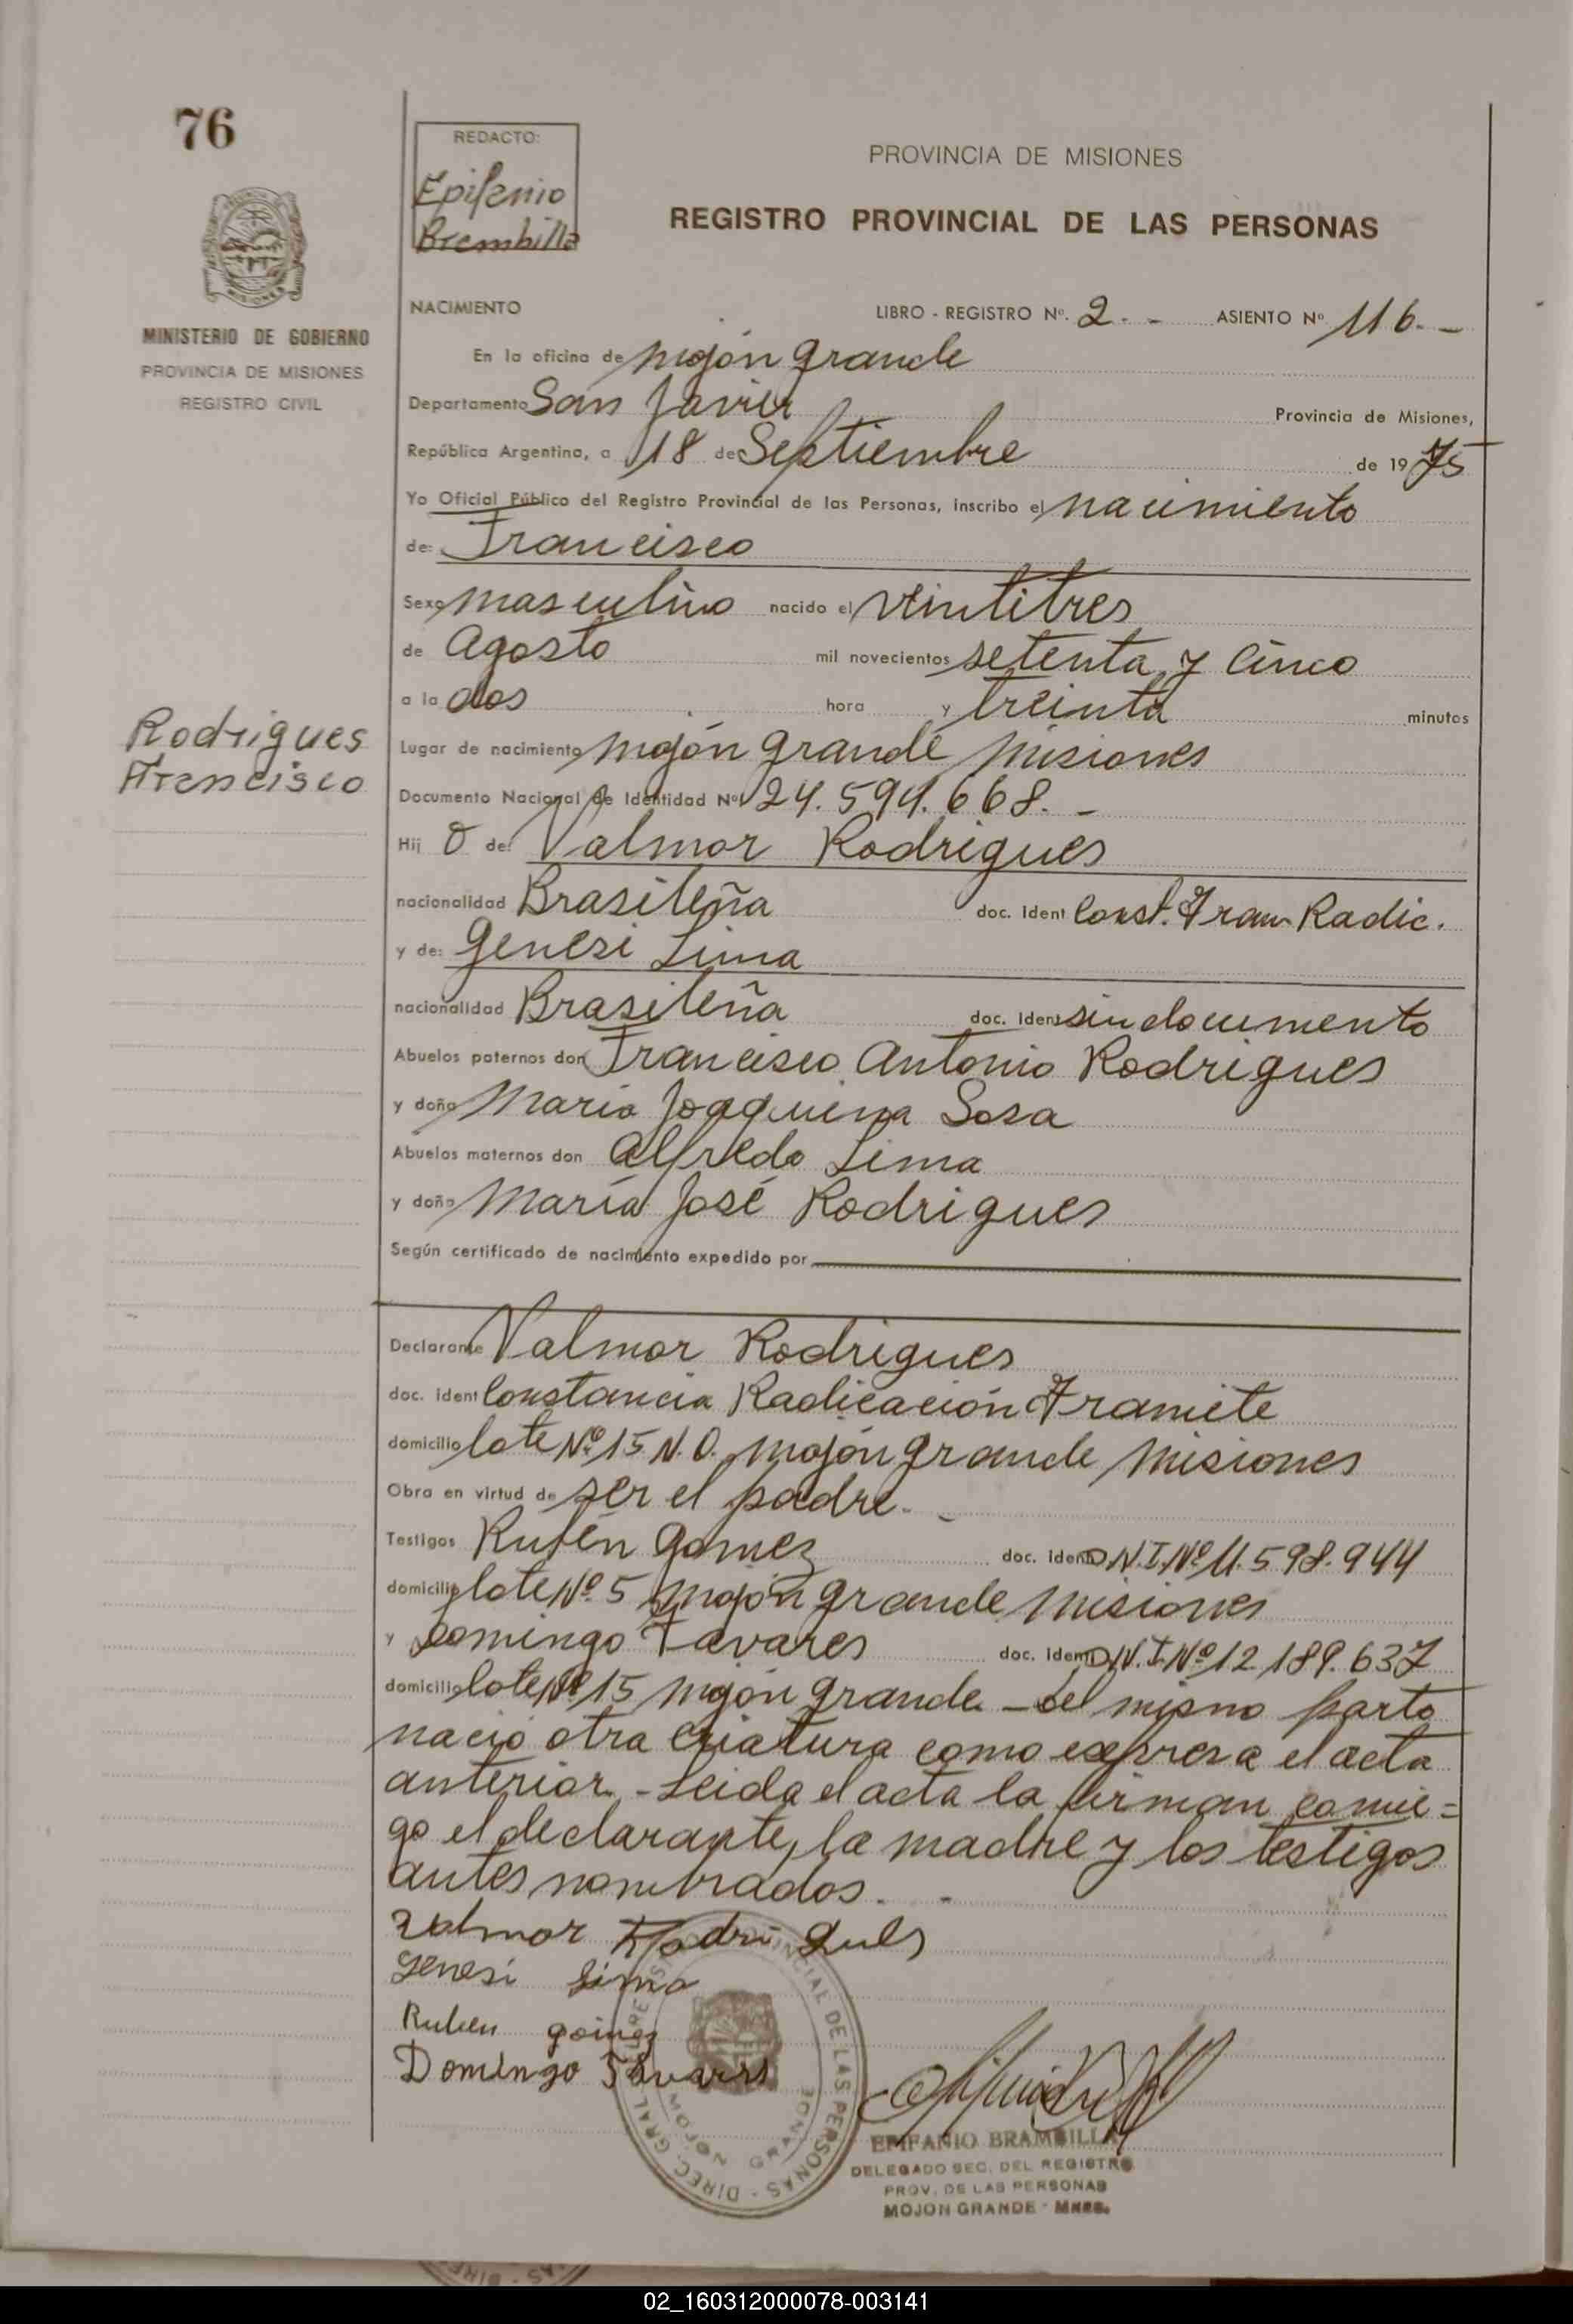 76
REDACTO:
Epifanio
Brembilla
PROVINCIA DE MISIONES
REGISTRO PROVINCIAL DE LAS PERSONAS
MISIONES
MINISTERIO DE GOBIERNO
PROVINCIA DE MISIONES
REGISTRO CIVIL
NACIMIENTO
LIBRO - REGISTRO Nº. 2. - ASIENTO Nº 116. -
En la oficina de mojón grande
Departamento San Javier Provincia de Misiones,
República Argentina, a 18 de Septiembre de 1975
Yo Oficial Público del Registro Provincial de las Personas, inscribo el nacimiento
de: Francisco
Sexo masculino nacido el veintitres
de Agosto mil novecientos setenta y cinco
a la dos hora y treinta minutos
Rodrigues
Francisco
Lugar de nacimiento mojón grande misiones
Documento Nacional de Identidad Nº 24.594.668. -
Hij o de: Valmor Rodrigues
nacionalidad Brasileña doc. Ident Const. Tram Radic.
y de: Genesi Lima
nacionalidad Brasileña doc. Ident sin documento
Abuelos paternos don Francisco Antonio Rodrigues
y doña María Joaquina Sosa
Abuelos maternos don Alfredo Lima
y doña María José Rodrigues
Según certificado de nacimiento expedido por
Declarante Valmor Rodrigues
doc. ident Constancia Radicación Tramite
domicilio lote Nº 15 N.O. mojón grande misiones
Obra en virtud de ser el padre. -
Testigos Rubén Gomez doc. ident D.N.I. Nº 11.598.944
domicilio lote Nº 5 mojón grande misiones
y Domingo Tavares doc. ident D.N.I. Nº 12.189.637
domicilio lote Nº 15 mojón grande - del mismo parto
nació otra criatura como expresa el acta
anterior. - Leida el acta la firman conmi=
go el declarante, la madre y los testigos
antes nombrados. -
Valmor Rodrigues
Genesi Lima
Ruben gomez
Domingo Tavares
DIREC. GRAL. PROVINCIAL DE LAS PERSONAS
MOJON GRANDE
EPIFANIO BRAMBILLA
DELEGADO SEC. DEL REGISTRO
PROV. DE LAS PERSONAS
MOJON GRANDE - Mnes.
02_160312000078-003141